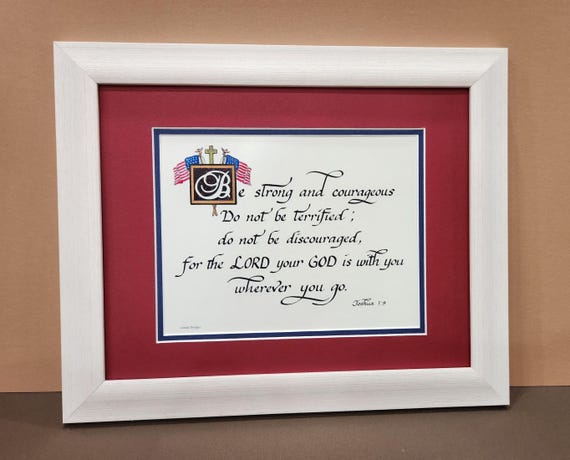 Be strong and courageous
Do not be terrified;
do not be discouraged,
for the LORD your GOD is with you
wherever you go.
Joshua 1:9